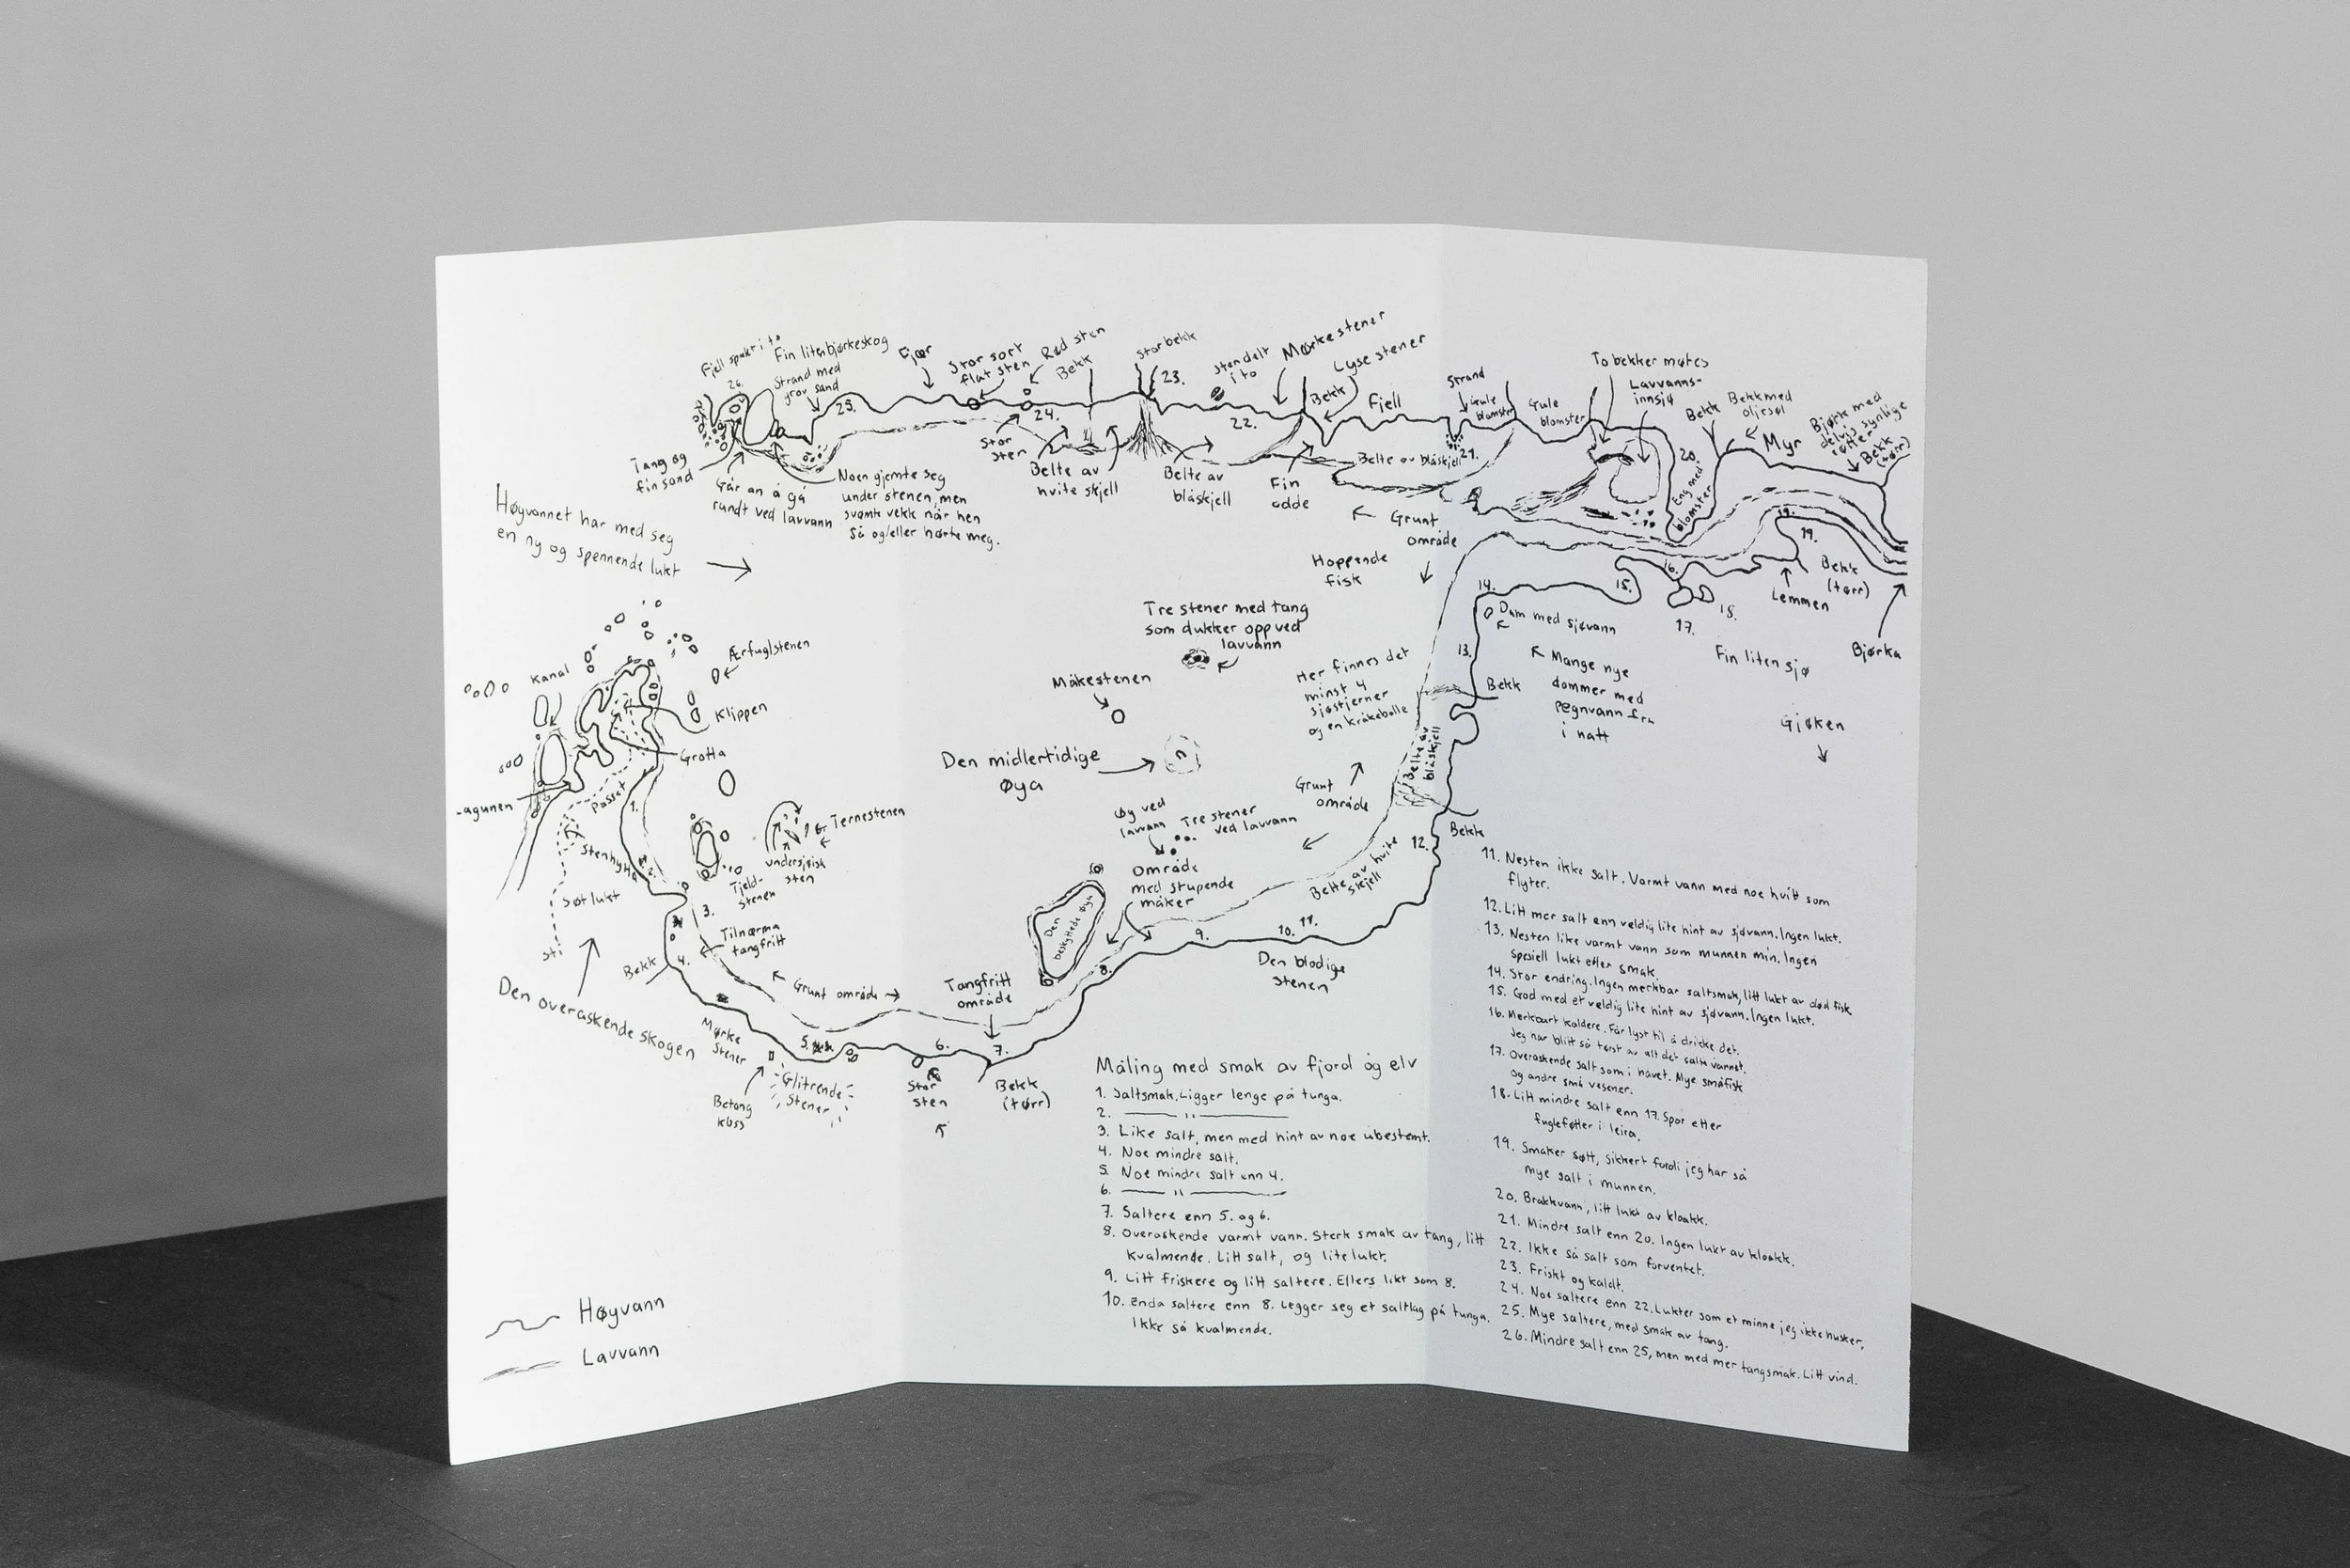 Fjell spakt i to
Fin liten bjørkeskog
26.
Strand med
grov sand
25.
Fjær
Stor sort
flat sten
Rød sten
Bekk
24.
Stor
sten
Storbekk
23.
Sten delt
i to
Mørke stener
Lyse stener
Bekk
22.
Fjell
Strand
Gule
blomster
Gule
blomster
To bekker møtes
Lavvanns-
innsjø
Bekk
Bekk med
oljesøl
Myr
Bjørk med
delvis synlige
røtter
Bekk
(tørr)
20.
Eng med
blomster
Tang og
fin sand
Går an å gå
rundt ved lavvann
Noen gjemte seg
under stenen, men
svømte vekk når hen
så og/eller hørte meg.
Belte av
hvite skjell
Belte av
blåskjell
Fin
odde
Belte av blåskjell
21.
Grunt
område
Høyvannet har med seg
en ny og spennende lukt
Hoppende
fisk
14.
15.
16.
17.
18.
19.
19.
Bekk
(tørr)
Lemmen
Bjørka
Dam med sjøvann
Fin liten sjø
Mange nye
dammer med
regnvann fra
i natt
Gjøken
13.
Bekk
Tre stener med tang
som dukker opp ved
lavvann
Måkestenen
Her finnes det
minst 4
sjøstjerner
og en kråkebolle
Den midlertidige
øya
Belte av
blåskjell
Grunt
område
Bekk
12.
Kanal
Ærfuglstenen
Klippen
Grotta
-agunen
Passet
1.
Stenhytta
2.
Ternestenen
undersjøisk
sten
Tjeld-
stenen
Søt lukt
Sti
3.
Tilnærma
tangfritt
Bekk
4.
Den overaskende skogen
Grunt område
Øy ved
lavvann
Tre stener
ved lavvann
Område
med stupende
måker
Den
beskyttede øya
Belte av hvite
skjell
8.
9.
10.
11.
Den blodige
stenen
Tangfritt
område
Mørke
stener
5.
6.
7.
Betong
kloss
Glitrende
Stener
Stor
sten
Bekk
(tørr)
Måling med smak av fjord og elv
1. Saltsmak. Ligger lenge på tunga.
2. —— " ——
3. Like salt, men med hint av noe ubestemt.
4. Noe mindre salt.
5. Noe mindre salt enn 4.
6. —— " ——
7. Saltere enn 5. og 6.
8. Overaskende varmt vann. Sterk smak av tang, litt
kvalmende. Litt salt, og lite lukt.
9. Litt friskere og litt saltere. Ellers likt som 8.
10. Enda saltere enn 8. Legger seg et saltlag på tunga.
Ikke så kvalmende.
11. Nesten ikke salt. Varmt vann med noe hvitt som
flyter.
12. Litt mer salt enn veldig lite hint av sjøvann. Ingen lukt.
13. Nesten like varmt vann som munnen min. Ingen
spesiell lukt eller smak.
14. Stor endring. Ingen merkbar saltsmak, litt lukt av død fisk.
15. God med et veldig lite hint av sjøvann. Ingen lukt.
16. Merkbart kaldere. Får lyst til å drikke det.
Jeg har blitt så tørst av alt det salte vannet.
17. Overaskende salt som i havet. Mye småfisk
og andre små vesener.
18. Litt mindre salt enn 17. Spor etter
fugleføtter i leira.
19. Smaker søtt, sikkert fordi jeg har så
mye salt i munnen.
20. Brakkvann, litt lukt av kloakk.
21. Mindre salt enn 20. Ingen lukt av kloakk.
22. Ikke så salt som forventet.
23. Friskt og kaldt.
24. Noe saltere enn 22. Lukter som et minne jeg ikke husker.
25. Mye saltere, med smak av tang.
26. Mindre salt enn 25, men med mer tangsmak. Litt vind.
Høyvann
Lavvann